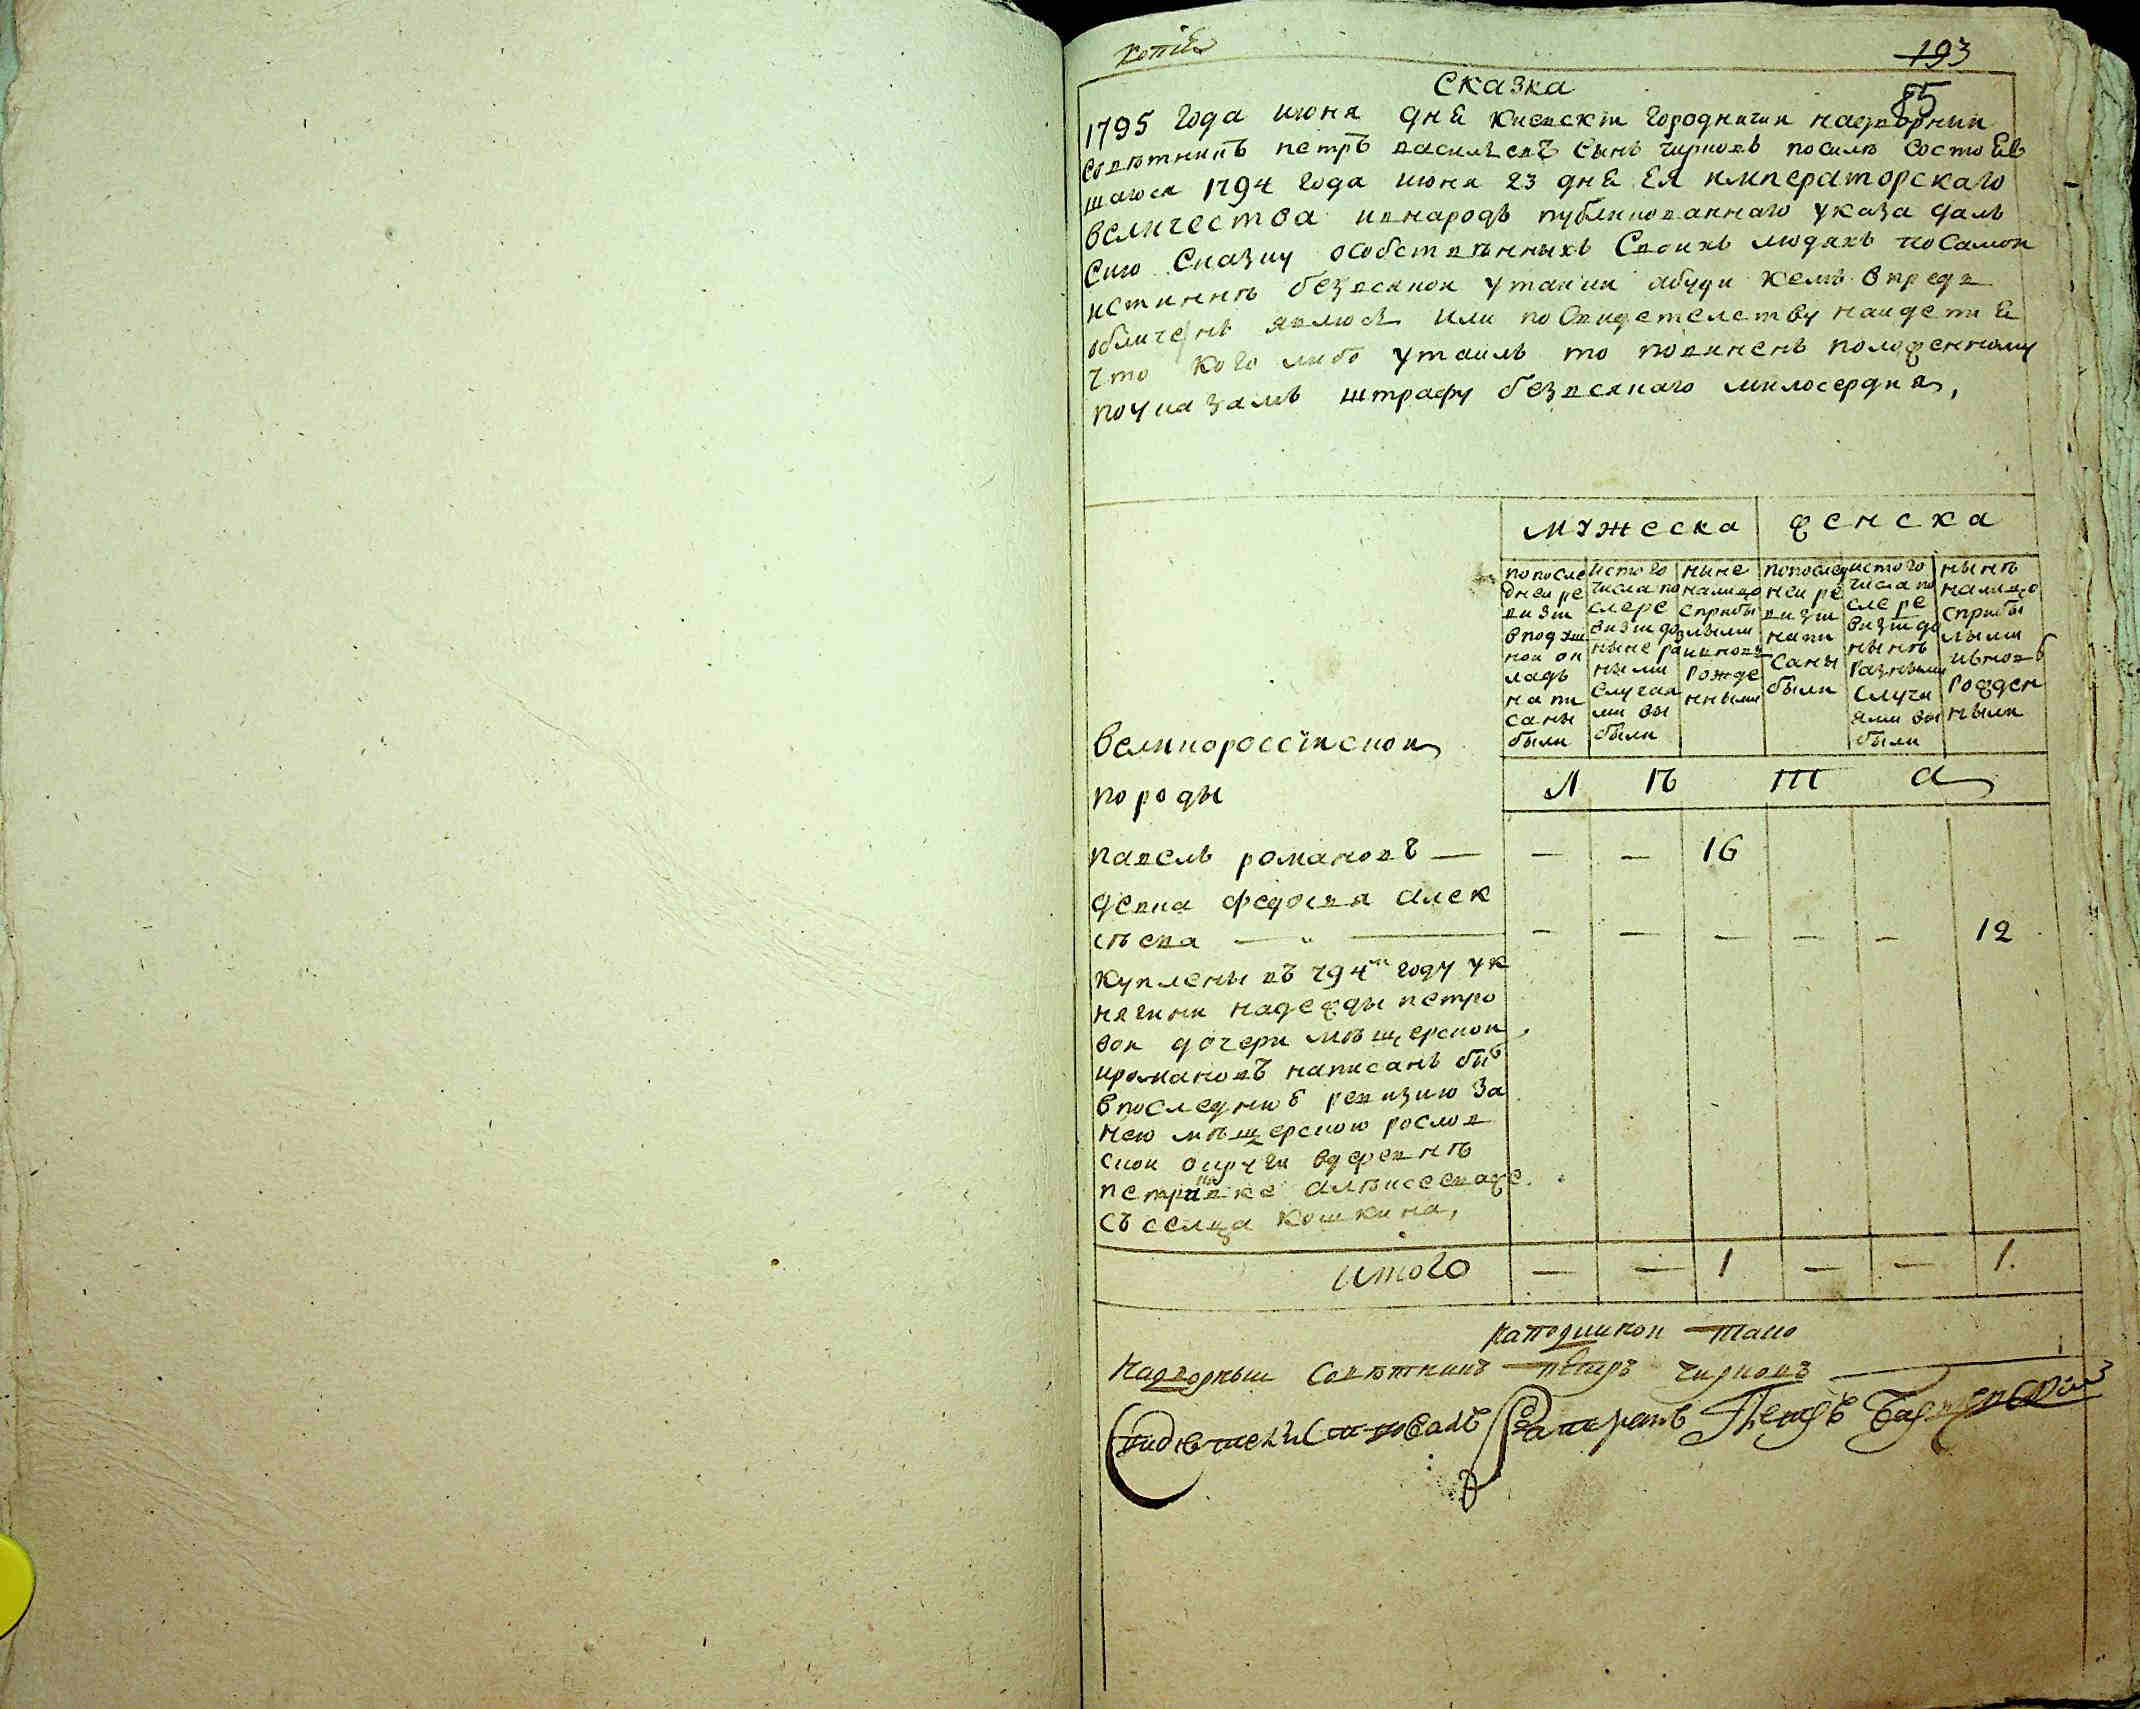 копія
193
85
Сказка
1795 года июня дня киевскій городничий надворный
советникъ петръ васильевъ сынъ чирковъ посиле состояв
шагося 1794 года июня 23 дня ЕЯ императорскаго
величества ивнародъ публикованнаго указа далъ
Сию Сказку особственныхъ Своихъ людяхъ посамой
истиннѣ безвсякой утайки абуди кемъ впредь
обличенъ явлюся или поСвидетелству найдетця
что кого либо утаилъ то повиненъ положенному
поуказамъ штрафу безвсякаго милосердия,
мужеска
женска
попосле дней ре визіи вподуш ной ок ладъ напи саны были
истого числа по сле ре визіи до ныне раз ными случая ми вы были
ныне налицо сприбы лыми ивновь рожде нными
попослед ней ре визіи напи саны были
истого числа по сле ре визіи до нынѣ разными случа ями вы были
нынѣ налицо сприбы лыми ивновь рожден ными
великороссійской
породы
Л ѣ т а
павелъ романовъ — — — 16
девка федосья алек
сѣева — — — — — — 12
куплены въ 794м году ук
нягини надежды петро
вой дочери мѣщерской
иромановъ написанъ бы
впоследнюю ревизию за
нею мѣщерскою рослов
ской округи вдеревнѣ
петровке алѣксееваже
съ селца кошкина,
итого — — 1 — — 1.
наподлинной тако
Надворный Советникъ петръ чирковъ
Свидетелствовалъ Секретарь Петръ